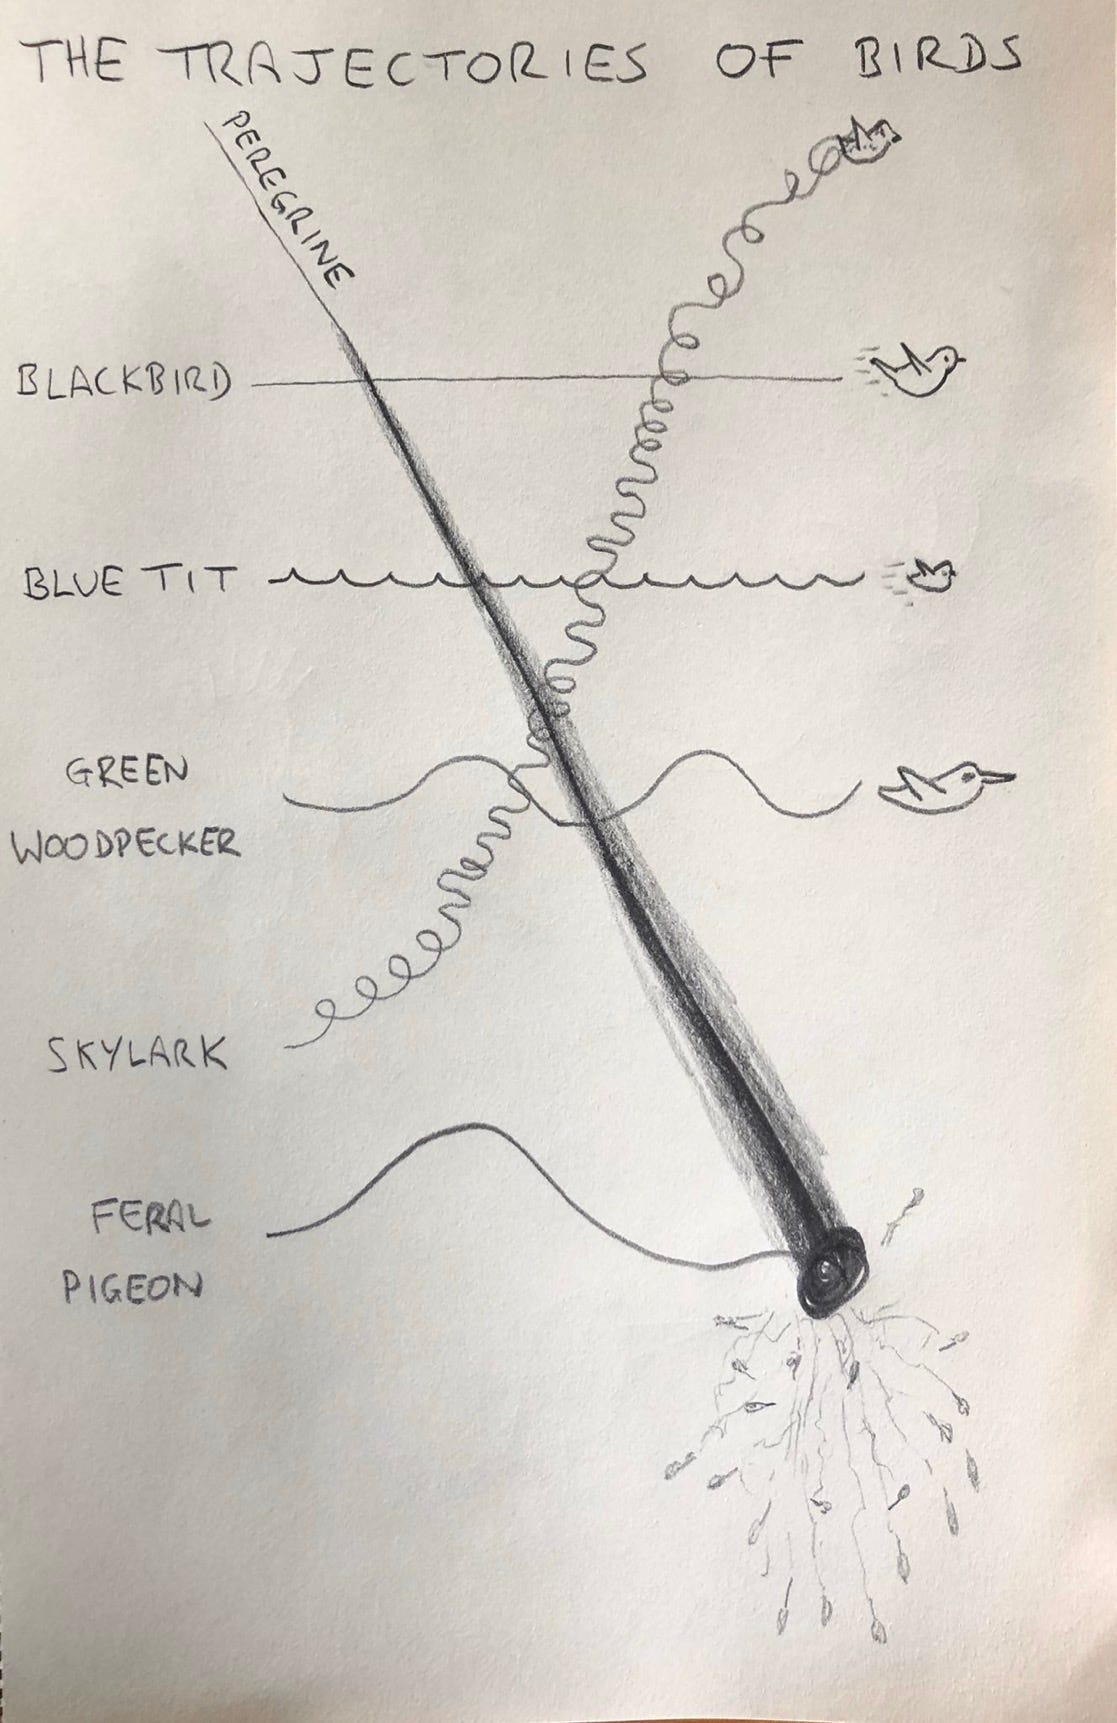 THE TRAJECTORIES OF BIRDS
PEREGRINE
BLACKBIRD
BLUE TIT
GREEN
WOODPECKER
SKYLARK
FERAL
PIGEON